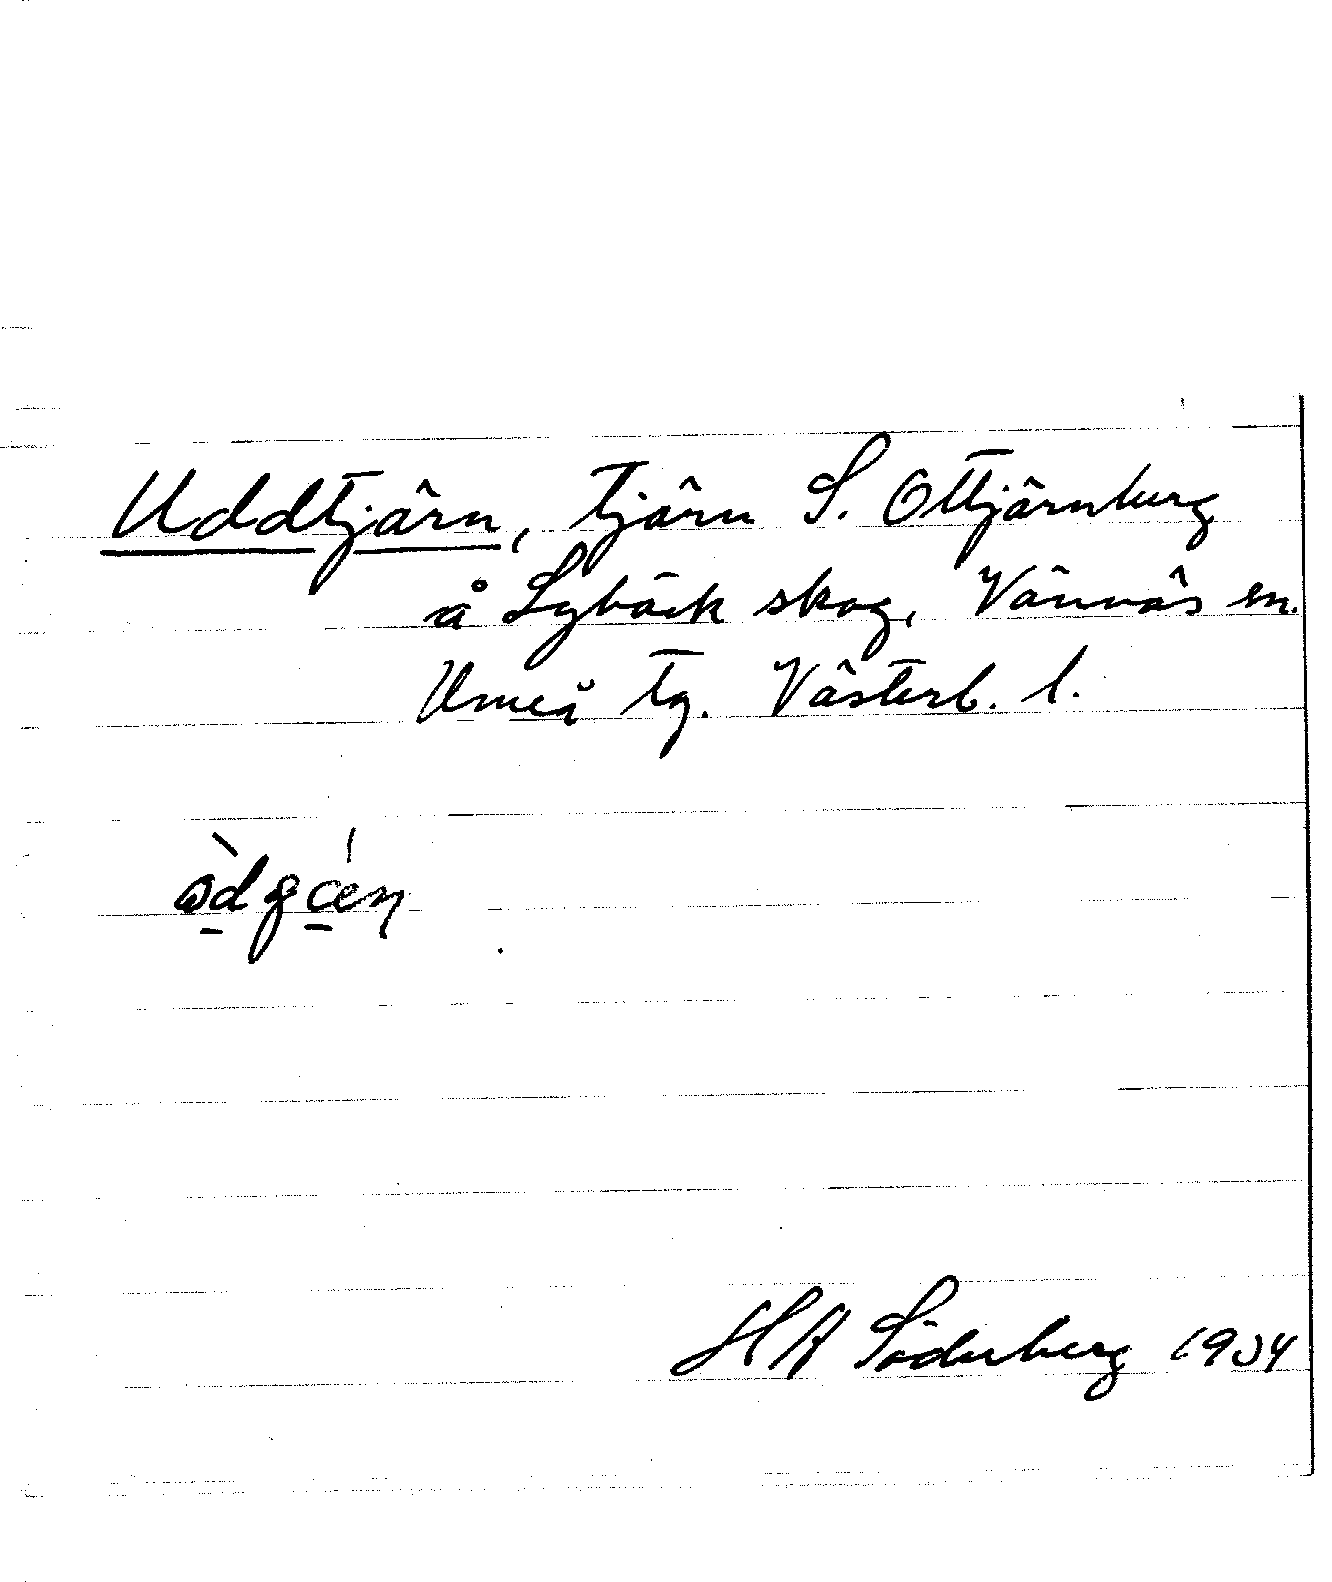 Uddtjärn, tjärn S. Ottjärnberg
å Lybäck skog, Vännäs sn.
Umeå tg. Västerb. l.
H A Söderberg 1934